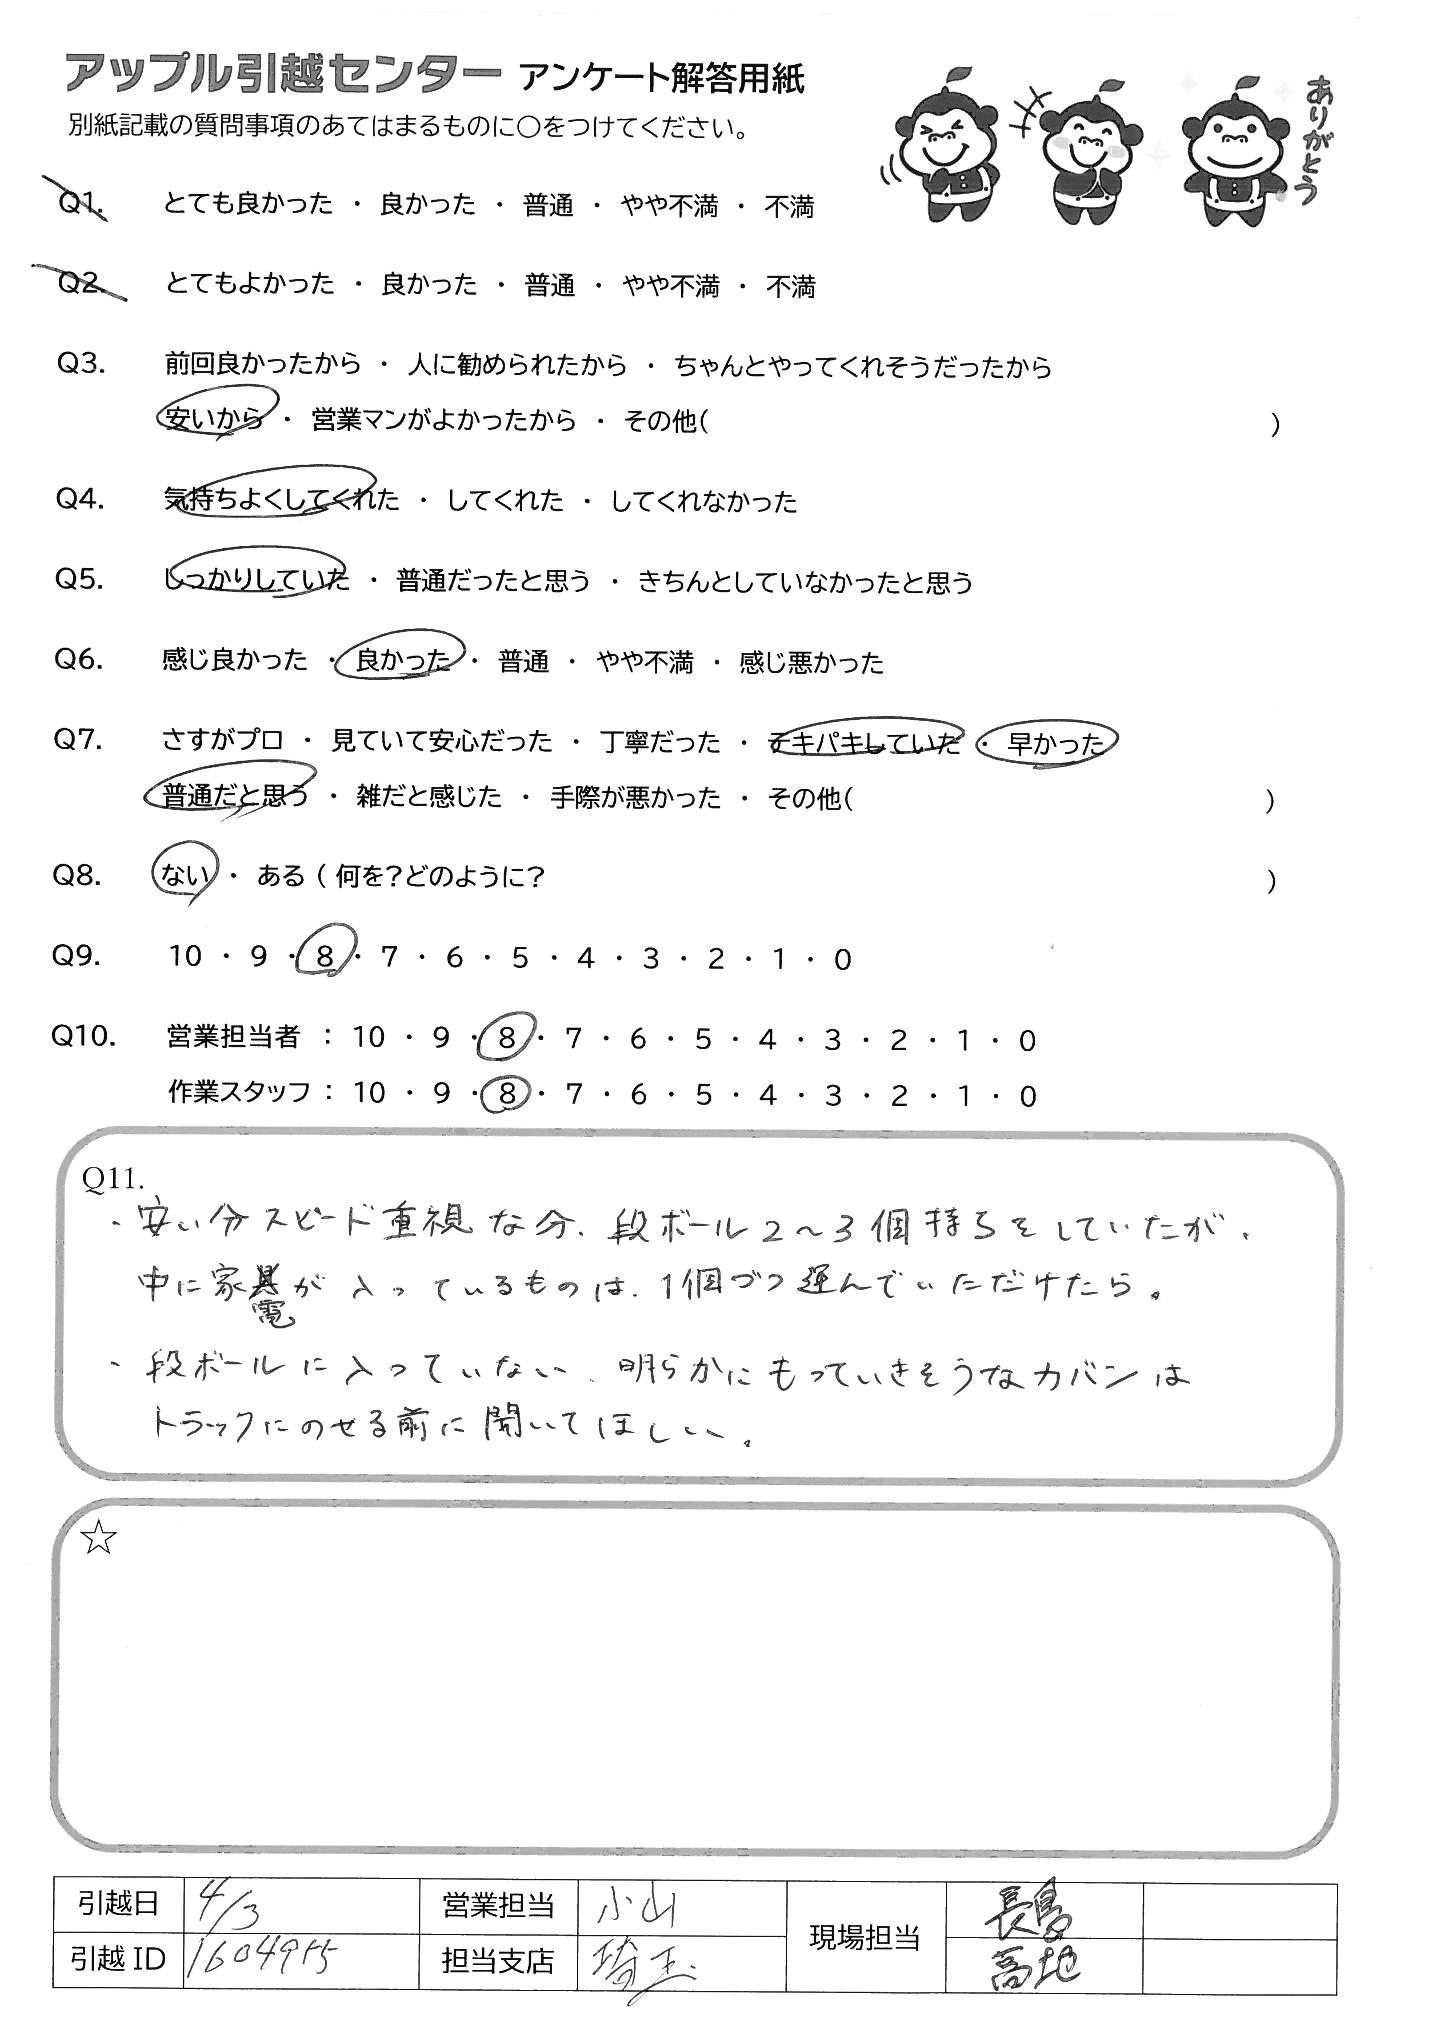 アップル引越センター アンケート解答用紙
別紙記載の質問事項のあてはまるものに〇をつけてください。
ありがとう
Q1. とても良かった ・ 良かった ・ 普通 ・ やや不満 ・ 不満
Q2. とてもよかった ・ 良かった ・ 普通 ・ やや不満 ・ 不満
Q3. 前回良かったから ・ 人に勧められたから ・ ちゃんとやってくれそうだったから
安いから ・ 営業マンがよかったから ・ その他( )
Q4. 気持ちよくしてくれた ・ してくれた ・ してくれなかった
Q5. しっかりしていた ・ 普通だったと思う ・ きちんとしていなかったと思う
Q6. 感じ良かった ・ 良かった ・ 普通 ・ やや不満 ・ 感じ悪かった
Q7. さすがプロ ・ 見ていて安心だった ・ 丁寧だった ・ テキパキしていた ・ 早かった
普通だと思う ・ 雑だと感じた ・ 手際が悪かった ・ その他( )
Q8. ない ・ ある ( 何を?どのように? )
Q9. 10 ・ 9 ・ 8 ・ 7 ・ 6 ・ 5 ・ 4 ・ 3 ・ 2 ・ 1 ・ 0
Q10. 営業担当者 : 10 ・ 9 ・ 8 ・ 7 ・ 6 ・ 5 ・ 4 ・ 3 ・ 2 ・ 1 ・ 0
作業スタッフ : 10 ・ 9 ・ 8 ・ 7 ・ 6 ・ 5 ・ 4 ・ 3 ・ 2 ・ 1 ・ 0
Q11.
・安い分スピード重視な分、段ボール2〜3個持ちをしていたが、
中に家電が入っているものは、1個づつ運んでいただけたら。
・段ボールに入っていない、明らかにもっていきそうなカバンは
トラックにのせる前に聞いてほしい。
☆
引越日 4/3 営業担当 小山 現場担当 長島
引越ID 担当支店 埼玉 高地